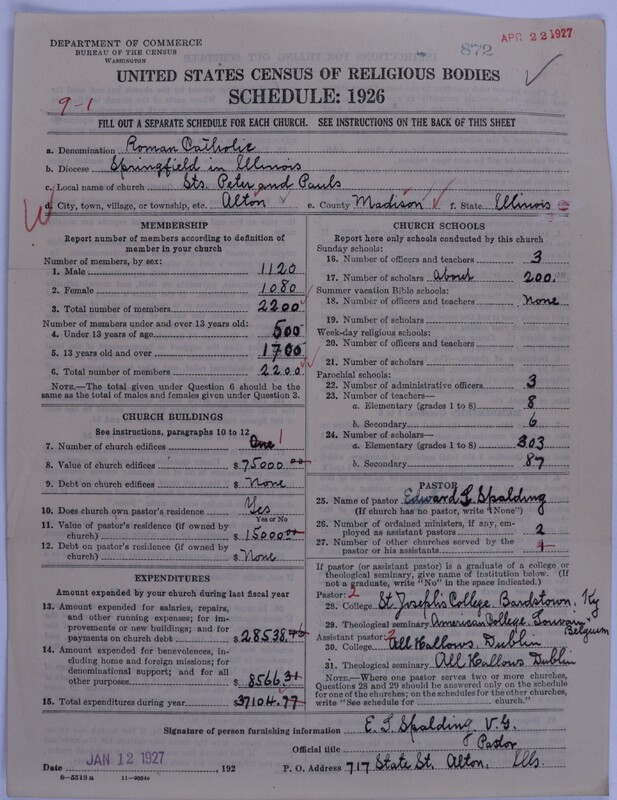 DEPARTMENT OF COMMERCE
BUREAU OF THE CENSUS
WASHINGTON
872
APR 22 1927
UNITED STATES CENSUS OF RELIGIOUS BODIES
SCHEDULE: 1926
9-1
FILL OUT A SEPARATE SCHEDULE FOR EACH CHURCH. SEE INSTRUCTIONS ON THE BACK OF THIS SHEET
a. Denomination Roman Catholic
b. Diocese Springfield in Illinois
c. Local name of church Sts. Peter and Pauls
d. City, town, village, or township, etc. Alton e. County Madison f. State Illinois
MEMBERSHIP
Report number of members according to definition of
member in your church
Number of members, by sex:
1. Male 1120
2. Female 1080
3. Total number of members 2200
Number of members under and over 13 years old:
4. Under 13 years of age 500
5. 13 years old and over 1700
6. Total number of members 2200
NOTE.—The total given under Question 6 should be
same as the total of males and females given under Question 3.
CHURCH BUILDINGS
See instructions, paragraphs 10 to 12
7. Number of church edifices One 1
8. Value of church edifices $75000.00
9. Debt on church edifices $ None
10. Does church own pastor's residence Yes
Yes or No
11. Value of pastor's residence (if owned by
church) $15000.00
12. Debt on pastor's residence (if owned by
church) $ None
EXPENDITURES
Amount expended by your church during last fiscal year
13. Amount expended for salaries, repairs,
and other running expenses; for im-
provements or new buildings; and for
payments on church debt $28538.46
14. Amount expended for benevolences,
including home and foreign missions; for
denominational support; and for all
other purposes $8566.31
15. Total expenditures during year $37104.77
CHURCH SCHOOLS
Report here only schools conducted by this church
Sunday schools:
16. Number of officers and teachers 3
17. Number of scholars About 200
Summer vacation Bible schools:
18. Number of officers and teachers None
19. Number of scholars
Week-day religious schools:
20. Number of officers and teachers
21. Number of scholars
Parochial schools:
22. Number of administrative officers 3
23. Number of teachers—
a. Elementary (grades 1 to 8) 8
b. Secondary 6
24. Number of scholars—
a. Elementary (grades 1 to 8) 303
b. Secondary 87
PASTOR
25. Name of pastor Edward L. Spalding
(If church has no pastor, write "None")
26. Number of ordained ministers, if any, em-
ployed as assistant pastors 2
27. Number of other churches served by the
pastor or his assistants 1
If pastor (or assistant pastor) is a graduate of a college or
theological seminary, give name of institution below. (If
not a graduate, write "No" in the space indicated.)
Pastor: 2
28. College St. Joseph's College, Bardstown, Ky
29. Theological seminary American College, Louvain
Belgium
Assistant pastor: 2
30. College All Hallows, Dublin
31. Theological seminary All Hallows Dublin
NOTE.—Where one pastor serves two or more churches,
Questions 28 and 29 should be answered only on the schedule
for one of the churches; on the schedules for the other churches,
write "See schedule for church."
Signature of person furnishing information E. L. Spalding V.G.
Official title & Pastor
Date JAN 12 1927 , 192 P. O. Address 717 State St. Alton, Ills.
8-5519a